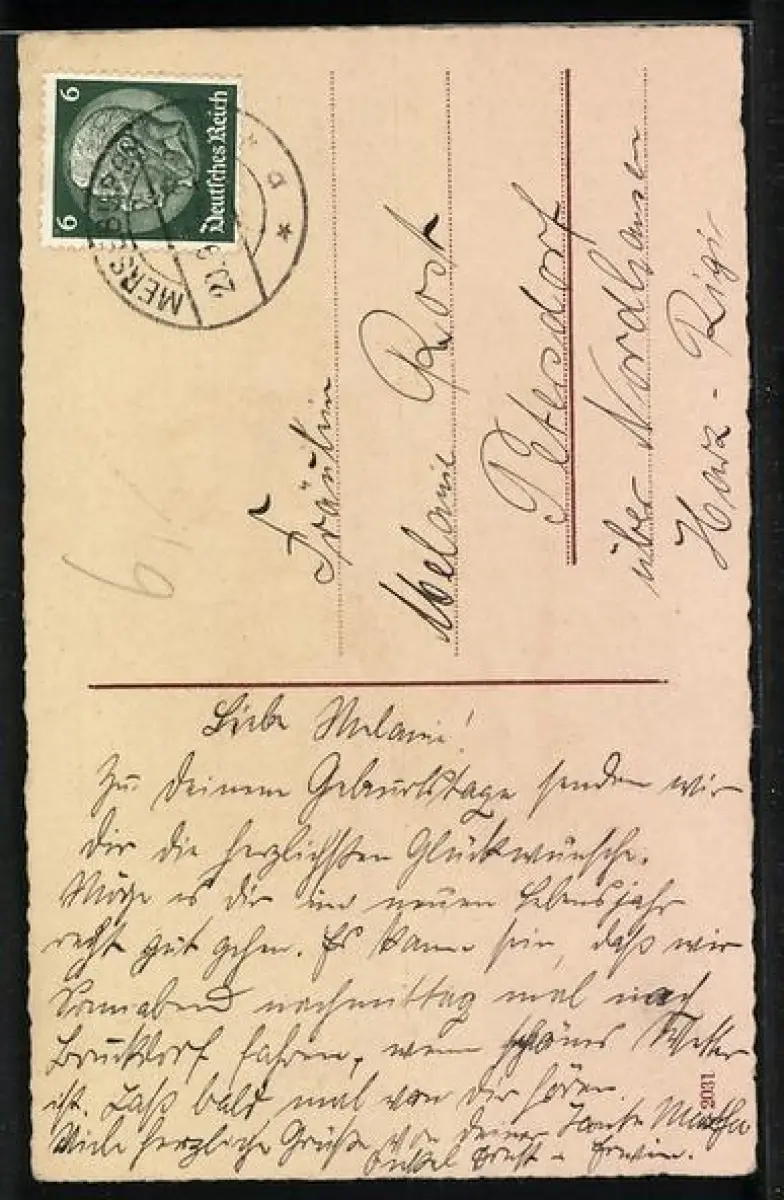 6 6
Deutsches Reich
MERSEBURG
20.3
* a
Fräulein
Melanie Rost
Petersdorf
über Nordhausen
Harz-Rigi
Liebe Melanie!
Zu Deinem Geburtstage senden wir
Dir die herzlichsten Glückwünsche.
Möge es Dir im neuen Lebensjahr
recht gut gehen. Es kann sein, daß wir
Sonnabend nachmittag mal nach
fahren, wenn schönes Wetter
ist. Laß bald mal von Dir hören.
Viele herzliche Grüße von Deiner Tante Martha
Onkel Ernst u. Erwin.
2031